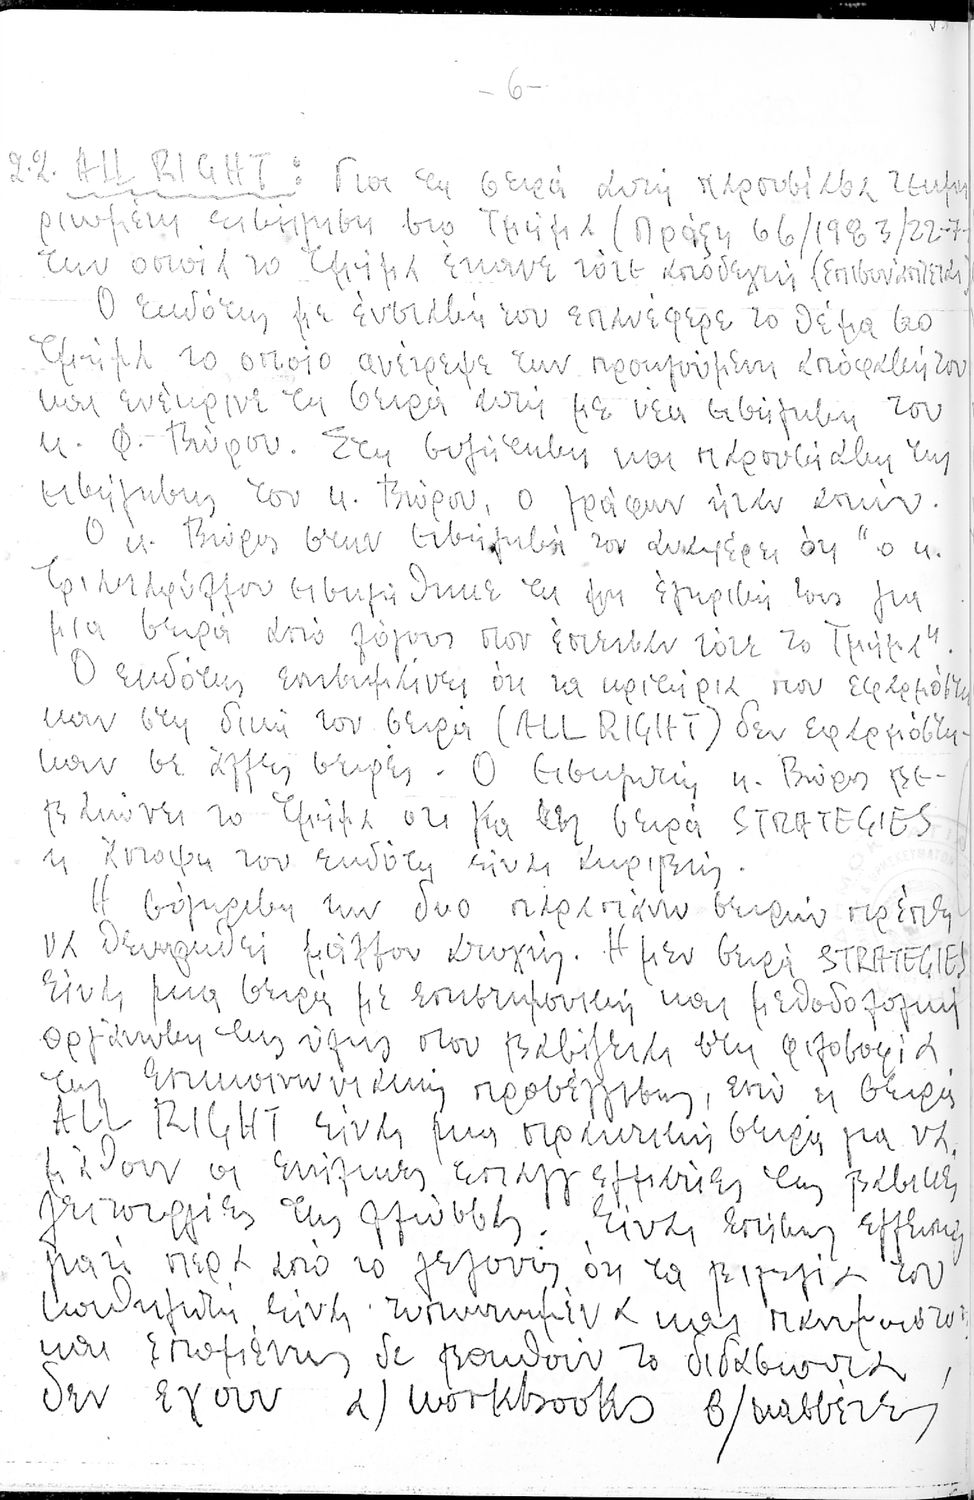 -6-
2.2. ALL RIGHT: Για τη σειρά αυτή παρουσίασα τεκμη
ριωμένη εισήγηση στο Τμήμα (Πράξη 66/1983/22-7-
την οποία το Τμήμα έκανε τότε αποδεχτή (Επισυνάπτεται)
Ο εκδότης με ένστασή του επανέφερε το θέμα στο
Τμήμα το οποίο ανέτρεψε την προηγούμενη απόφασή του
και ενέκρινε τη σειρά αυτή με νέα εισήγηση του
κ. Φ. Βώρου. Στη συζήτηση και παρουσίαση της
εισήγησης του κ. Βώρου, ο γράφων ήταν απών.
Ο κ. Βώρος στην εισήγησή του αναφέρει ότι "ο κ.
Τριανταφύλλου εισηγήθηκε τη μη έγκρισή τους για
μια σειρά από λόγους που έπεισαν τότε το Τμήμα".
Ο εκδότης επισημαίνει ότι τα κριτήρια που εφαρμόστη
καν στη δική του σειρά (ALL RIGHT) δεν εφαρμόστη-
καν σε άλλες σειρές. Ο εισηγητής κ. Βώρος βε-
βαιώνει το Τμήμα οτι για τη σειρά STRATEGIES
η άποψη του εκδότη είναι ακριβής.
Η σύγκριση των δυο παραπάνω σειρών πρέπει
να θεωρηθεί μάλλον ατυχής. Η μεν σειρά STRATEGIES
είναι μια σειρά με επιστημονική και μεθοδολογική
οργάνωση της ύλης που βασίζεται στη φιλοσοφία
της επικοινωνιακής προσέγγισης, ενώ η σειρά
ALL RIGHT είναι μια πρακτική σειρά για να
μάθουν οι ενήλικες επαγγελματίες τις βασικές
λειτουργίες της γλώσσας. Είναι επίσης ελλειπής
γιατί περα από το γεγονός ότι τα βιβλία του
καθηγητή είναι τυποποιημένα και
και επομένως δε βοηθούν το διδάσκοντα,
δεν έχουν α) workbooks β) κασσέτες,